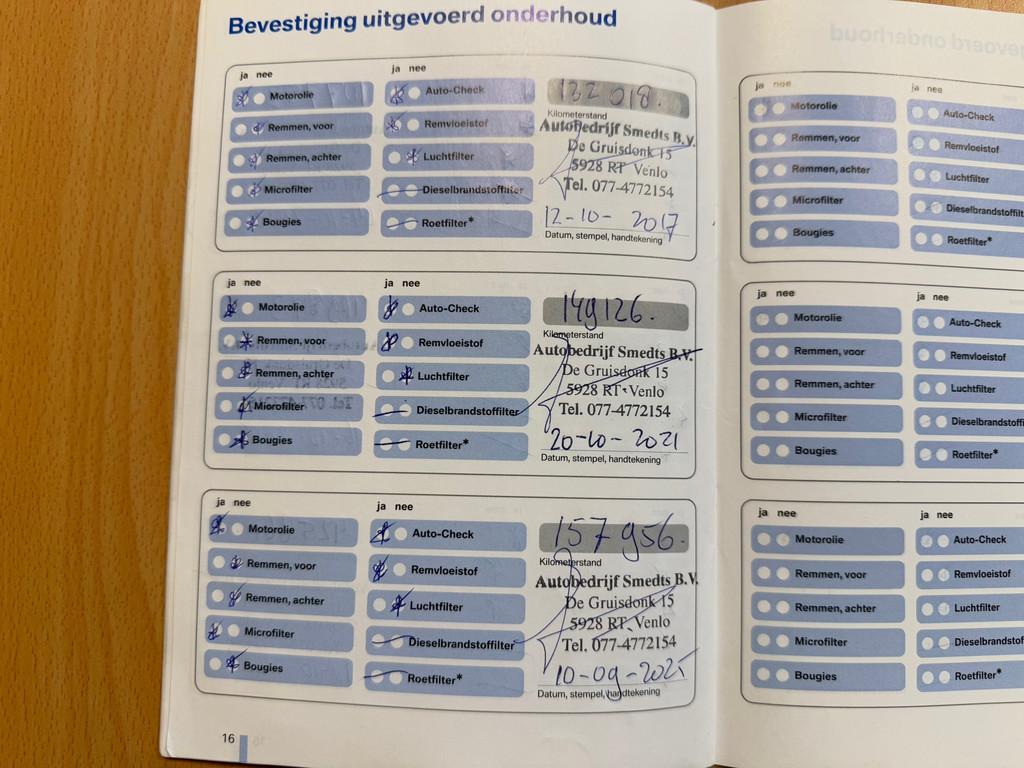 Bevestiging uitgevoerd onderhoud
ja nee
ja nee
Motorolie
Auto-Check
Remmen, voor
Remvloeistof
Remmen, achter
Luchtfilter
Microfilter
Dieselbrandstoffilter
Bougies
Roetfilter*
132 018.
Kilometerstand
Autobedrijf Smedts B.V.
De Gruisdonk 15
5928 RT Venlo
Tel. 077-4772154
12-10-2017
Datum, stempel, handtekening
ja nee
ja nee
Motorolie
Auto-Check
Remmen, voor
Remvloeistof
Remmen, achter
Luchtfilter
Microfilter
Dieselbrandstoffilter
Bougies
Roetfilter*
149126.
Kilometerstand
Autobedrijf Smedts B.V.
De Gruisdonk 15
5928 RT Venlo
Tel. 077-4772154
20-10-2021
Datum, stempel, handtekening
ja nee
ja nee
Motorolie
Auto-Check
Remmen, voor
Remvloeistof
Remmen, achter
Luchtfilter
Microfilter
Dieselbrandstoffilter
Bougies
Roetfilter*
157956.
Kilometerstand
Autobedrijf Smedts B.V.
De Gruisdonk 15
5928 RT Venlo
Tel. 077-4772154
10-09-2025
Datum, stempel, handtekening
16
ja nee
ja nee
Motorolie
Auto-Check
Remmen, voor
Remvloeistof
Remmen, achter
Luchtfilter
Microfilter
Dieselbrandstoffilt
Bougies
Roetfilter*
ja nee
ja nee
Motorolie
Auto-Check
Remmen, voor
Remvloeistof
Remmen, achter
Luchtfilter
Microfilter
Dieselbrandstoffi
Bougies
Roetfilter*
ja nee
ja nee
Motorolie
Auto-Check
Remmen, voor
Remvloeistof
Remmen, achter
Luchtfilter
Microfilter
Dieselbrandstoffi
Bougies
Roetfilter*